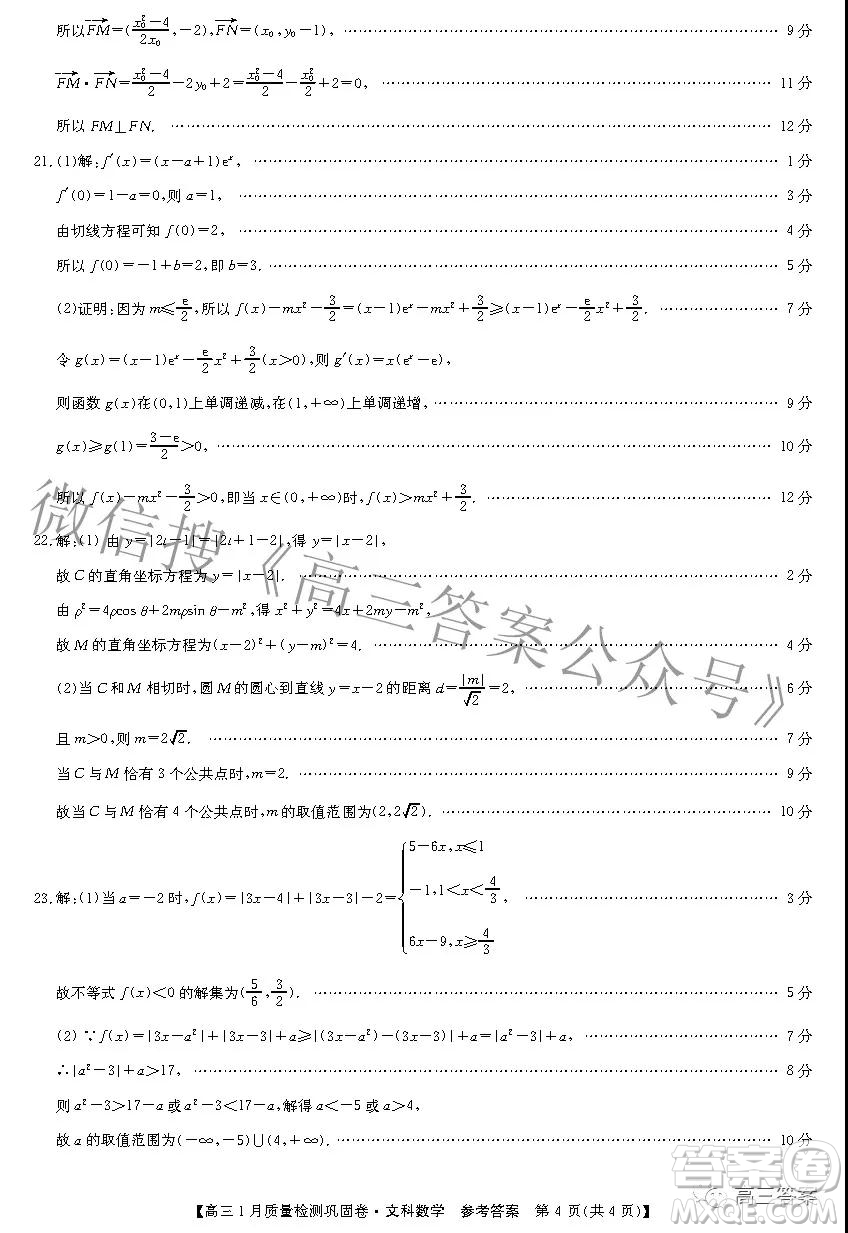 所以FM→=(x₀²−4/2x₀,−2),FN→=(x₀,y₀−1), 9分
FM→·FN→=x₀²−4/2−2y₀+2=x₀²−4/2−x₀²/2+2=0, 11分
所以FM⊥FN. 12分
21.(1)解:f′(x)=(x−a+1)eˣ, 1分
f′(0)=1−a=0,则a=1, 3分
由切线方程可知f(0)=2, 4分
所以f(0)=−1+b=2,即b=3. 5分
(2)证明:因为m≤e/2,所以f(x)−mx²−3/2=(x−1)eˣ−mx²+3/2≥(x−1)eˣ−e/2x²+3/2. 7分
令g(x)=(x−1)eˣ−e/2x²+3/2(x>0),则g′(x)=x(eˣ−e),
则函数g(x)在(0,1)上单调递减,在(1,+∞)上单调递增, 9分
g(x)≥g(1)=3−e/2>0, 10分
所以f(x)−mx²−3/2>0,即当x∈(0,+∞)时,f(x)>mx²+3/2. 12分
22.解:(1)由y=|2t−1|=|2t+1−2|,得y=|x−2|,
故C的直角坐标方程为y=|x−2|. 2分
由ρ²=4ρcos θ+2mρsin θ−m²,得x²+y²=4x+2my−m²,
故M的直角坐标方程为(x−2)²+(y−m)²=4. 4分
(2)当C和M相切时,圆M的圆心到直线y=x−2的距离d=|m|/√2=2, 6分
且m>0,则m=2√2. 7分
当C与M恰有3个公共点时,m=2. 9分
故当C与M恰有4个公共点时,m的取值范围为(2,2√2). 10分
23.解:(1)当a=−2时,f(x)=|3x−4|+|3x−3|−2={5−6x,x≤1
−1,1<x<4/3, 3分
6x−9,x≥4/3
故不等式f(x)<0的解集为(5/6,3/2). 5分
(2)∵f(x)=|3x−a²|+|3x−3|+a≥|(3x−a²)−(3x−3)|+a=|a²−3|+a, 7分
∴|a²−3|+a>17, 8分
则a²−3>17−a或a²−3<17−a,解得a<−5或a>4,
故a的取值范围为(−∞,−5)∪(4,+∞). 10分
【高三1月质量检测巩固卷·文科数学 参考答案 第4页(共4页)】
微信搜《高三答案公众号》
高三答案
答案圈
MXQE.COM